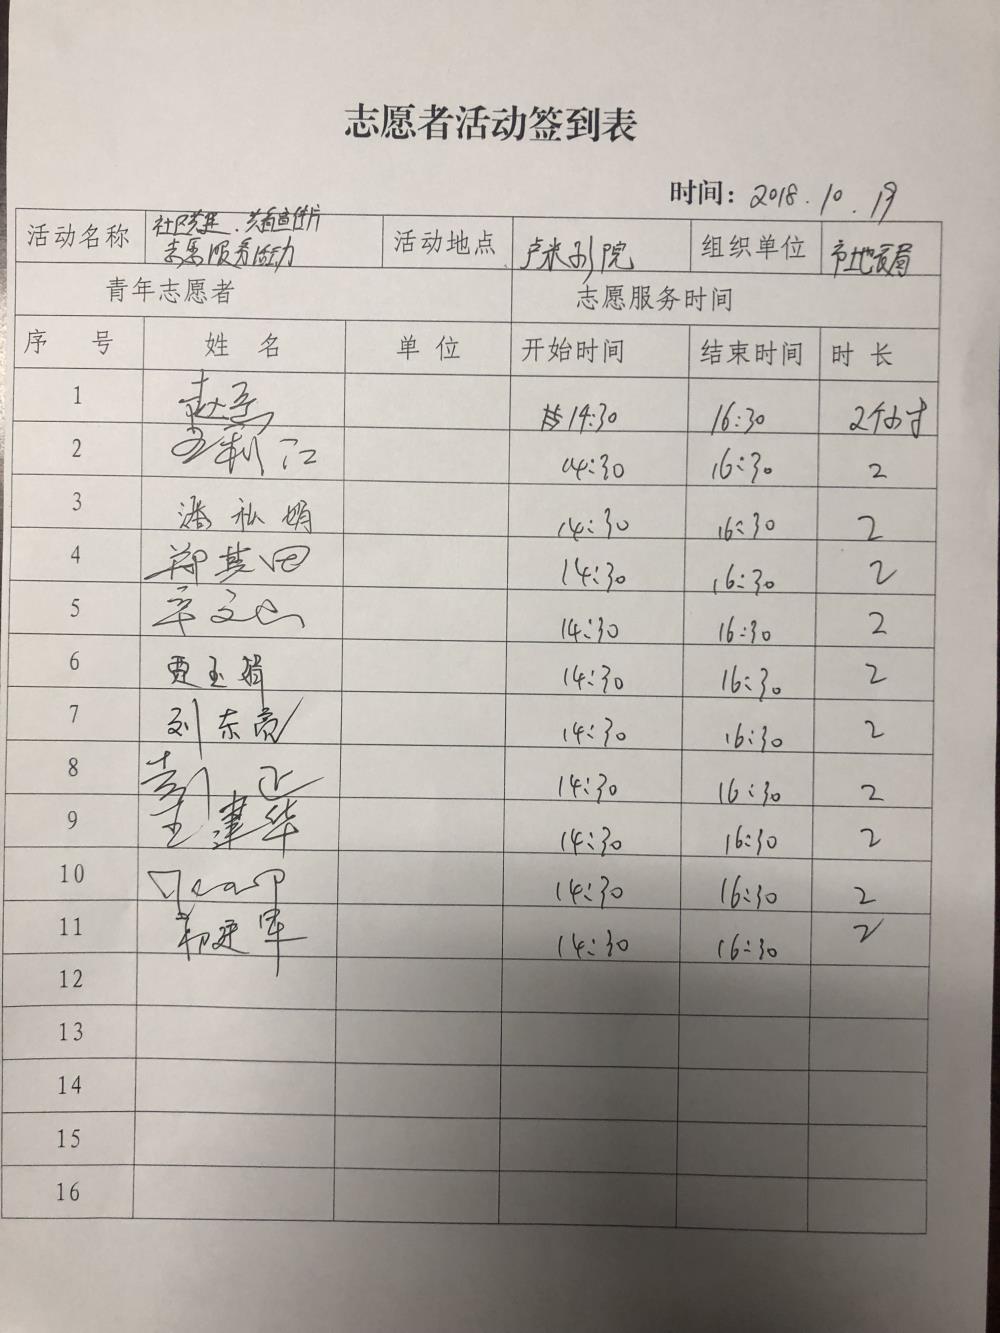 志愿者活动签到表
时间：2018.10.19
活动名称 社区党建、共看宣传片 志愿服务活动 活动地点 卢米影院 组织单位
青年志愿者 志愿服务时间
序 号 姓 名 单 位 开始时间 结束时间 时 长
1 14:30 16:30 2个小时
2 王利江 14:30 16:30 2
3 潘 娟 14:30 16:30 2
4 14:30 16:30 2
5 14:30 16:30 2
6 贾玉娟 14:30 16:30 2
7 刘东亮 14:30 16:30 2
8 14:30 16:30 2
9 王津华 14:30 16:30 2
10 14:30 16:30 2
11 14:30 16:30 2
12
13
14
15
16